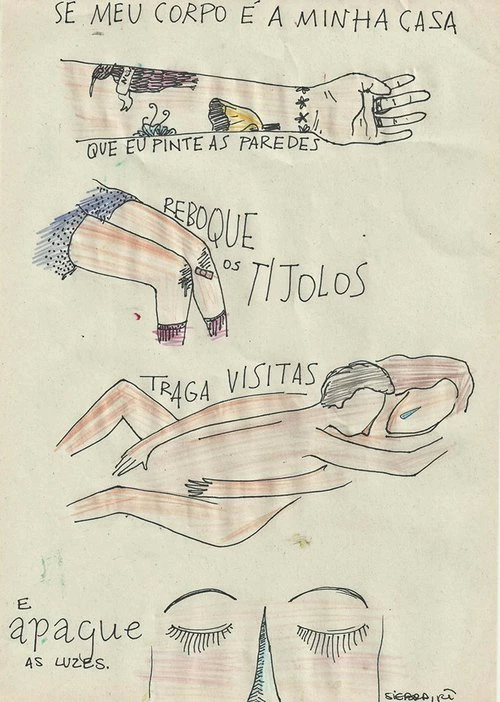 SE MEU CORPO É A MINHA CASA
QUE EU PINTE AS PAREDES
REBOQUE
OS
TIJOLOS
TRAGA VISITAS
E
apague
AS LUZES.